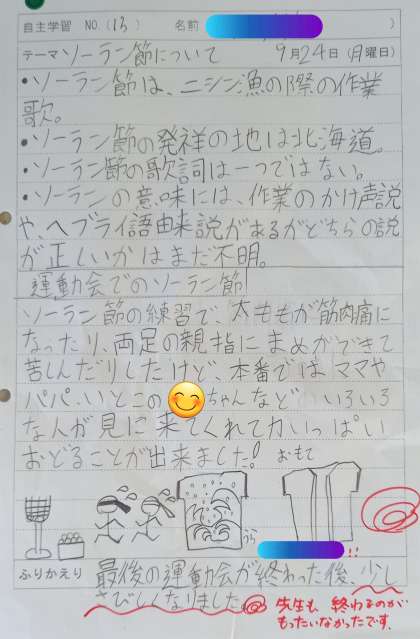 自主学習 NO.(13) 名前
テーマ ソーラン節について 9月24日(月曜日)
・ソーラン節は、ニシン漁の際の作業
歌。
・ソーラン節の発祥の地は北海道。
・ソーラン節の歌詞は一つではない。
・ソーランの意味には、作業のかけ声説
や、ヘブライ語由来説があるがどちらの説
が正しいかはまだ不明。
運動会でのソーラン節
ソーラン節の練習で、太ももが筋肉痛に
なったり、両足の親指にまめができて
苦しんだりしたけど、本番ではママや
パパ・いとこの ちゃんなどいろいろ
な人が見に来てくれて力いっぱい
おどることが出来ました!
おもて
うら
!!
ふりかえり 最後の運動会が終わった後、少し
さびしくなりました。
先生も 終わるのが
もったいなかったです。